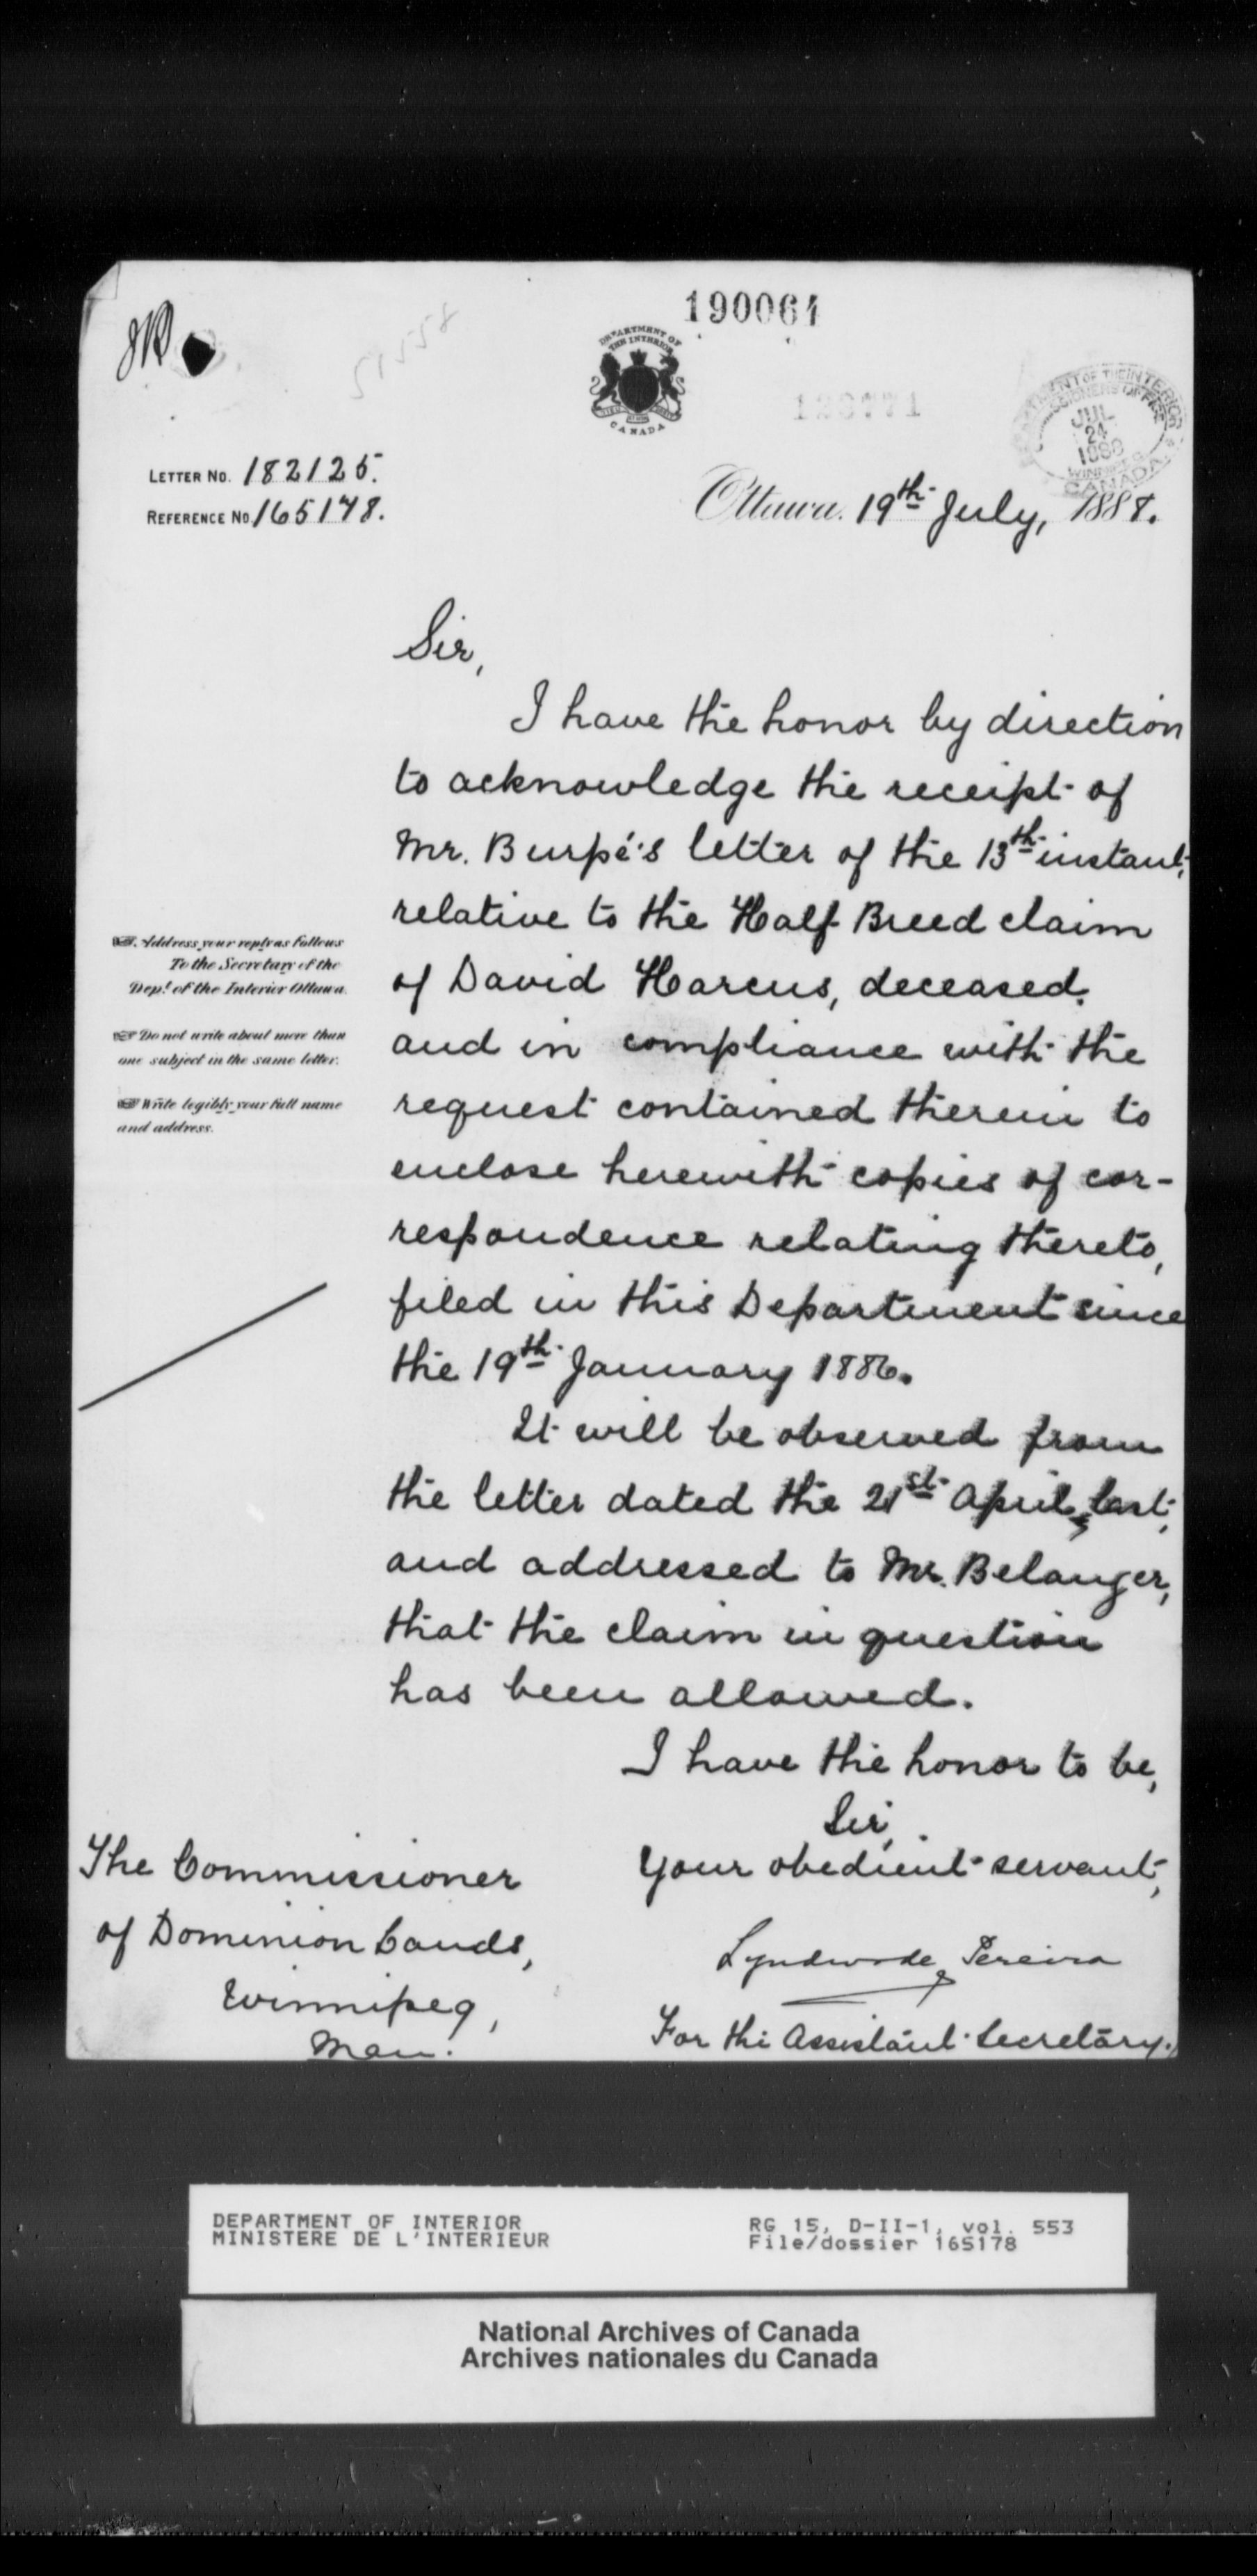 190061
DEPARTMENT OF
THE INTERIOR
CANADA
128771
DEPARTMENT OF THE INTERIOR
COMMISSIONERS OFFICE
JUL
24
1888
WINNIPEG
CANADA
LETTER NO. 182125.
REFERENCE NO. 165178.
Ottawa. 19th July, 1888.
Sir,
I have the honor by direction
to acknowledge the receipt of
Mr. Burpé's letter of the 13th instant,
relative to the Half Breed claim
of David Harcus, deceased,
and in compliance with the
request contained therein to
enclose herewith copies of cor-
respondence relating thereto,
filed in this Department since
the 19th January 1886.
It will be observed from
the letter dated the 21st April, last,
and addressed to Mr. Belanger,
that the claim in question
has been allowed.
I have the honor to be,
Sir,
Your obedient servant,
Lyndwode Pereira
For the Assistant Secretary.
Address your reply as follows
To the Secretary of the
Dept. of the Interior Ottawa.
Do not write about more than
one subject in the same letter.
Write legibly your full name
and address.
The Commissioner
of Dominion Lands,
Winnipeg,
Man.
DEPARTMENT OF INTERIOR
MINISTERE DE L'INTERIEUR
RG 15, D-II-1, vol. 553
File/dossier 165178
National Archives of Canada
Archives nationales du Canada